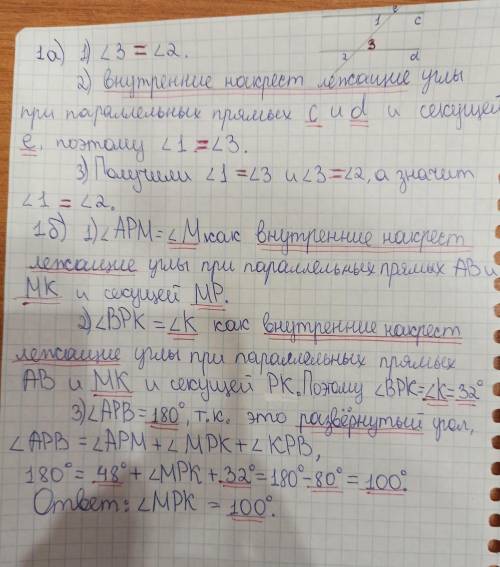 e
1 c
3
2 d
1а) 1) ∠3 = ∠2.
2) внутренние накрест лежащие углы
при параллельных прямых c и d и секущей
e, поэтому ∠1 = ∠3.
3) Получили ∠1 = ∠3 и ∠3 = ∠2, а значит
∠1 = ∠2.
1б) 1) ∠APM = ∠M как внутренние накрест
лежащие углы при параллельных прямых AB и
MK и секущей MP.
2) ∠BPK = ∠K как внутренние накрест
лежащие углы при параллельных прямых
AB и MK и секущей PK. Поэтому ∠BPK = ∠K = 32°
3) ∠APB = 180°, т.к. это развёрнутый угол,
∠APB = ∠APM + ∠MPK + ∠KPB,
180° = 48° + ∠MPK + 32° = 180° - 80° = 100°.
Ответ: ∠MPK = 100°.